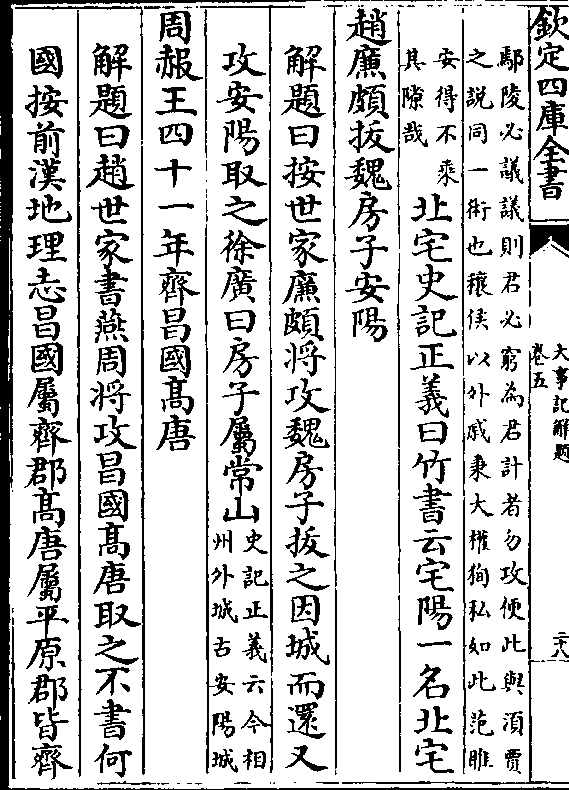 欽定四庫全書
大事記解題
卷五
二十八
鄢陵必議議則君必窮為君計者勿攻便此與湏賈
之説同一術也穰侯以外戚秉大權狥私如此范睢
安得不乘
其隙哉
北宅史記正義曰竹書云宅陽一名北宅
趙廉頗拔魏房子安陽
解題曰按世家廉頗将攻魏房子拔之因城而還又
攻安陽取之徐廣曰房子屬常山
史記正義云今相
州外城古安陽城
周赧王四十一年齊昌國髙唐
解題曰趙世家書燕周将攻昌國髙唐取之不書何
國按前漢地理志昌國屬齊郡髙唐屬平原郡皆齊